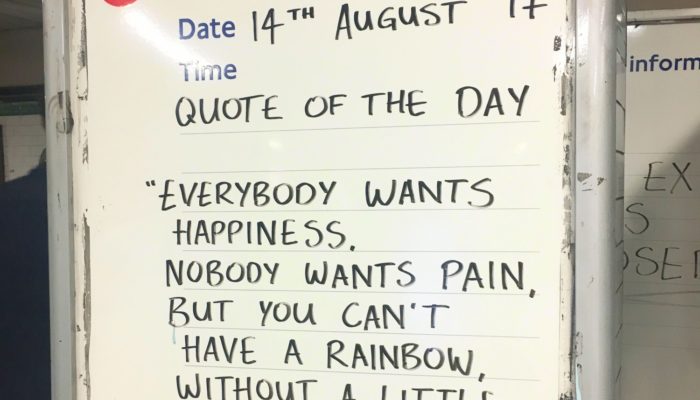 Date 14TH AUGUST 17
Time
QUOTE OF THE DAY
"EVERYBODY WANTS
HAPPINESS.
NOBODY WANTS PAIN,
BUT YOU CAN'T
HAVE A RAINBOW,
WITHOUT A LITTLE
inform
EX